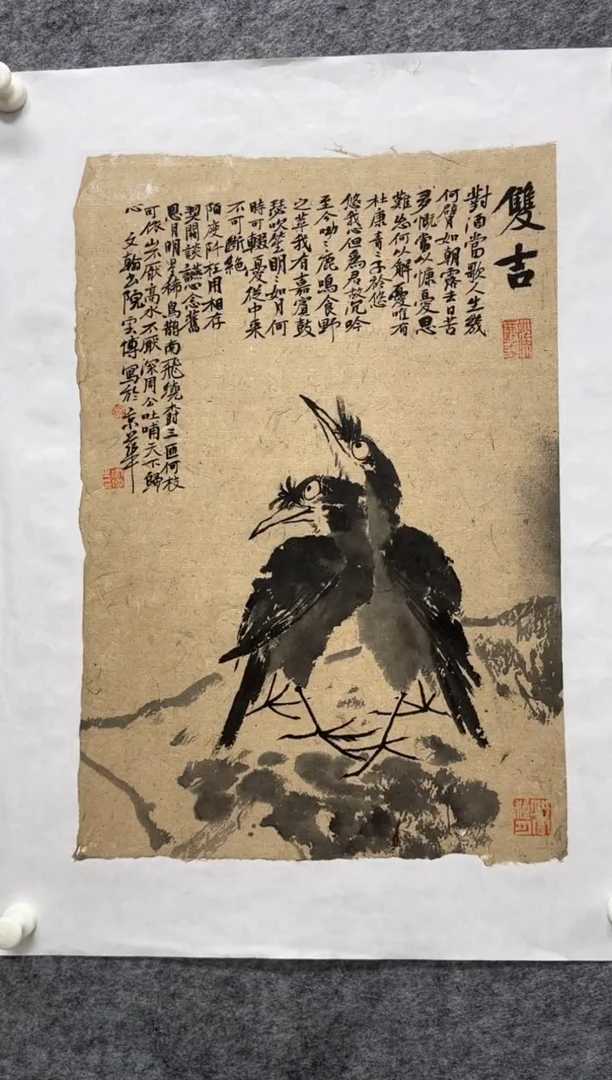 雙吉
對酒當歌人生幾
何譬如朝露去日苦
多慨當以慷憂思
難忘何以解憂唯有
杜康青〻子衿悠
悠我心但爲君故沉吟
至今呦〻鹿鳴食野
之苹我有嘉賓鼓
瑟吹笙明〻如月何
時可輟憂從中来
不可斷絕
陌度阡枉用相存
契闊談讌心念舊
恩月明星稀烏鵲南飛繞樹三匝何枝
可依山不厭高水不厭深周公吐哺天下歸
心 文翰書院雲傳寫於京華